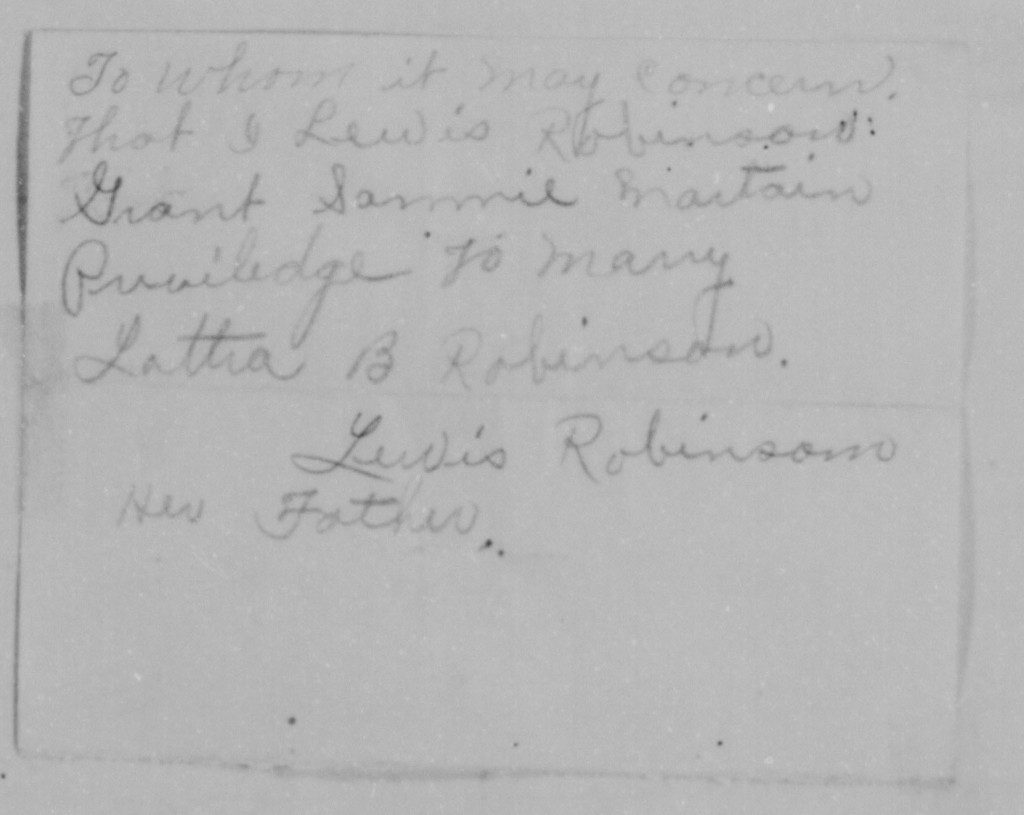 To Whom it May Concern.
That I Lewis Robinson:
Grant Sammie Martain
Priviledge To Marry
Lattra B Robinson.
Lewis Robinsom
Her Father.